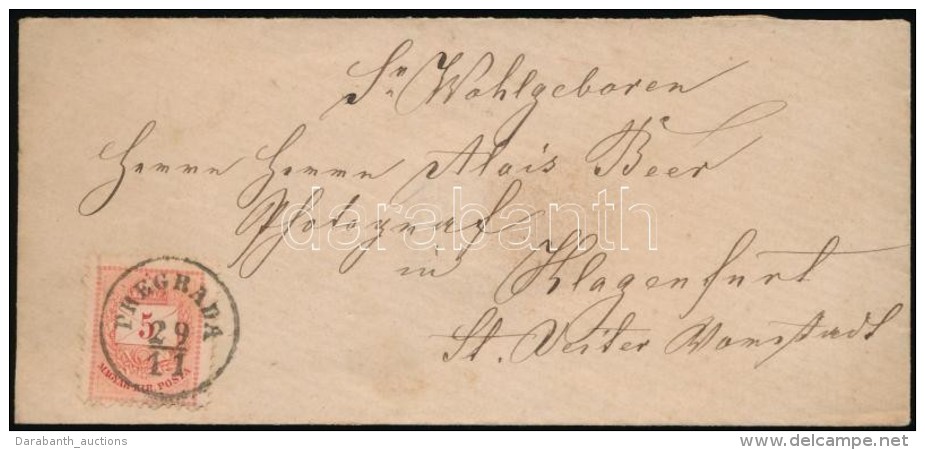 Sr Wohlgeboren
Herrn Herrn Alois Beer
Photograf
in Klagenfurt
St. Veiter Vorstadt
darabanth
PREGRADA
29
11
5
MAGYAR KIR. POSTA
Darabanth_auctions
www.delcampe.net